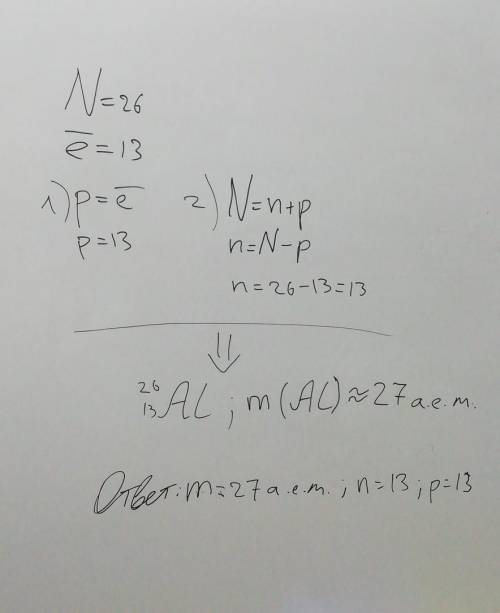 N=26
e̅=13
1) p=e̅
p=13
2) N=n+p
n=N-p
n=26-13=13
⇓
²⁶₁₃AL; m(AL)≈27 a.e.m.
Ответ: m=27 a.e.m.; n=13; p=13